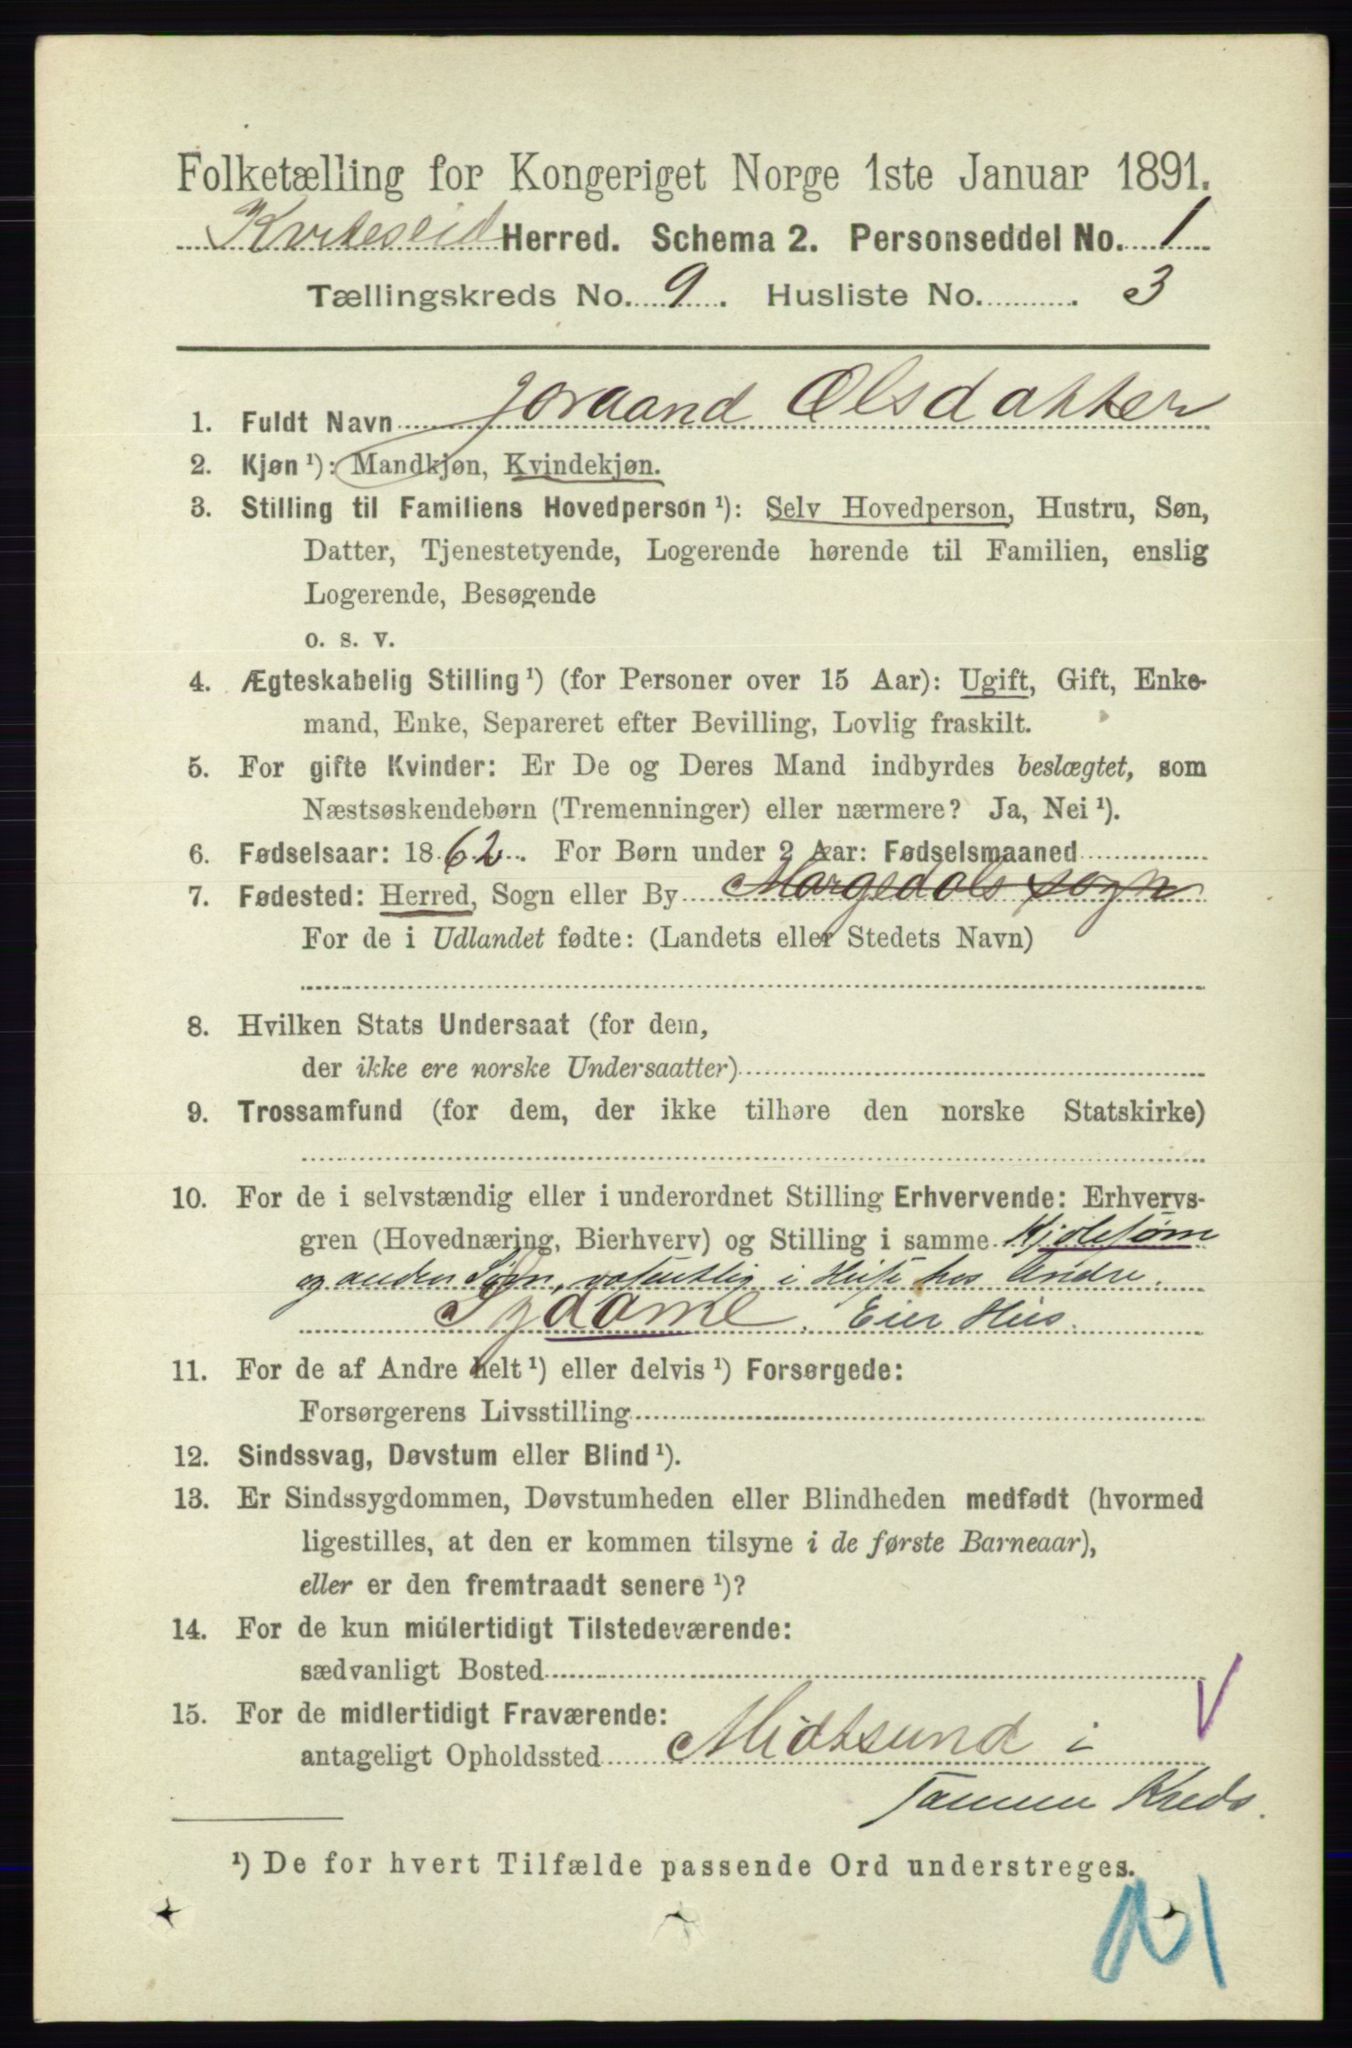 Folketælling for Kongeriget Norge 1ste Januar 1891.
Kviteseid Herred. Schema 2. Personseddel No. 1
Tællingskreds No. 9. Husliste No. 3
1. Fuldt Navn Joraand Olsdatter
2. Kjøn ¹): Mandkjøn, Kvindekjøn.
3. Stilling til Familiens Hovedperson ¹): Selv Hovedperson, Hustru, Søn,
Datter, Tjenestetyende, Logerende hørende til Familien, enslig
Logerende, Besøgende
o. s. v.
4. Ægteskabelig Stilling ¹) (for Personer over 15 Aar): Ugift, Gift, Enke-
mand, Enke, Separeret efter Bevilling, Lovlig fraskilt.
5. For gifte Kvinder: Er De og Deres Mand indbyrdes beslægtet, som
Næstsøskendebørn (Tremenninger) eller nærmere? Ja, Nei ¹).
6. Fødselsaar: 1862. For Børn under 2 Aar: Fødselsmaaned
7. Fødested: Herred, Sogn eller By Morgedals sogn
For de i Udlandet fødte: (Landets eller Stedets Navn)
8. Hvilken Stats Undersaat (for dem,
der ikke ere norske Undersaatter)
9. Trossamfund (for dem, der ikke tilhøre den norske Statskirke)
10. For de i selvstændig eller i underordnet Stilling Erhvervende: Erhvervs-
gren (Hovednæring, Bierhverv) og Stilling i samme Kjolesøm
og anden Søm, væsentlig i Huse hos Andre.
Sydame. Eier Hus.
11. For de af Andre helt ¹) eller delvis ¹) Forsørgede:
Forsørgerens Livsstilling
12. Sindssvag, Døvstum eller Blind ¹).
13. Er Sindssygdommen, Døvstumheden eller Blindheden medfødt (hvormed
ligestilles, at den er kommen tilsyne i de første Barneaar),
eller er den fremtraadt senere ¹)?
14. For de kun midlertidigt Tilstedeværende:
sædvanligt Bosted
15. For de midlertidigt Fraværende:
antageligt Opholdssted Midtsund i
samme Kreds.
¹) De for hvert Tilfælde passende Ord understreges.